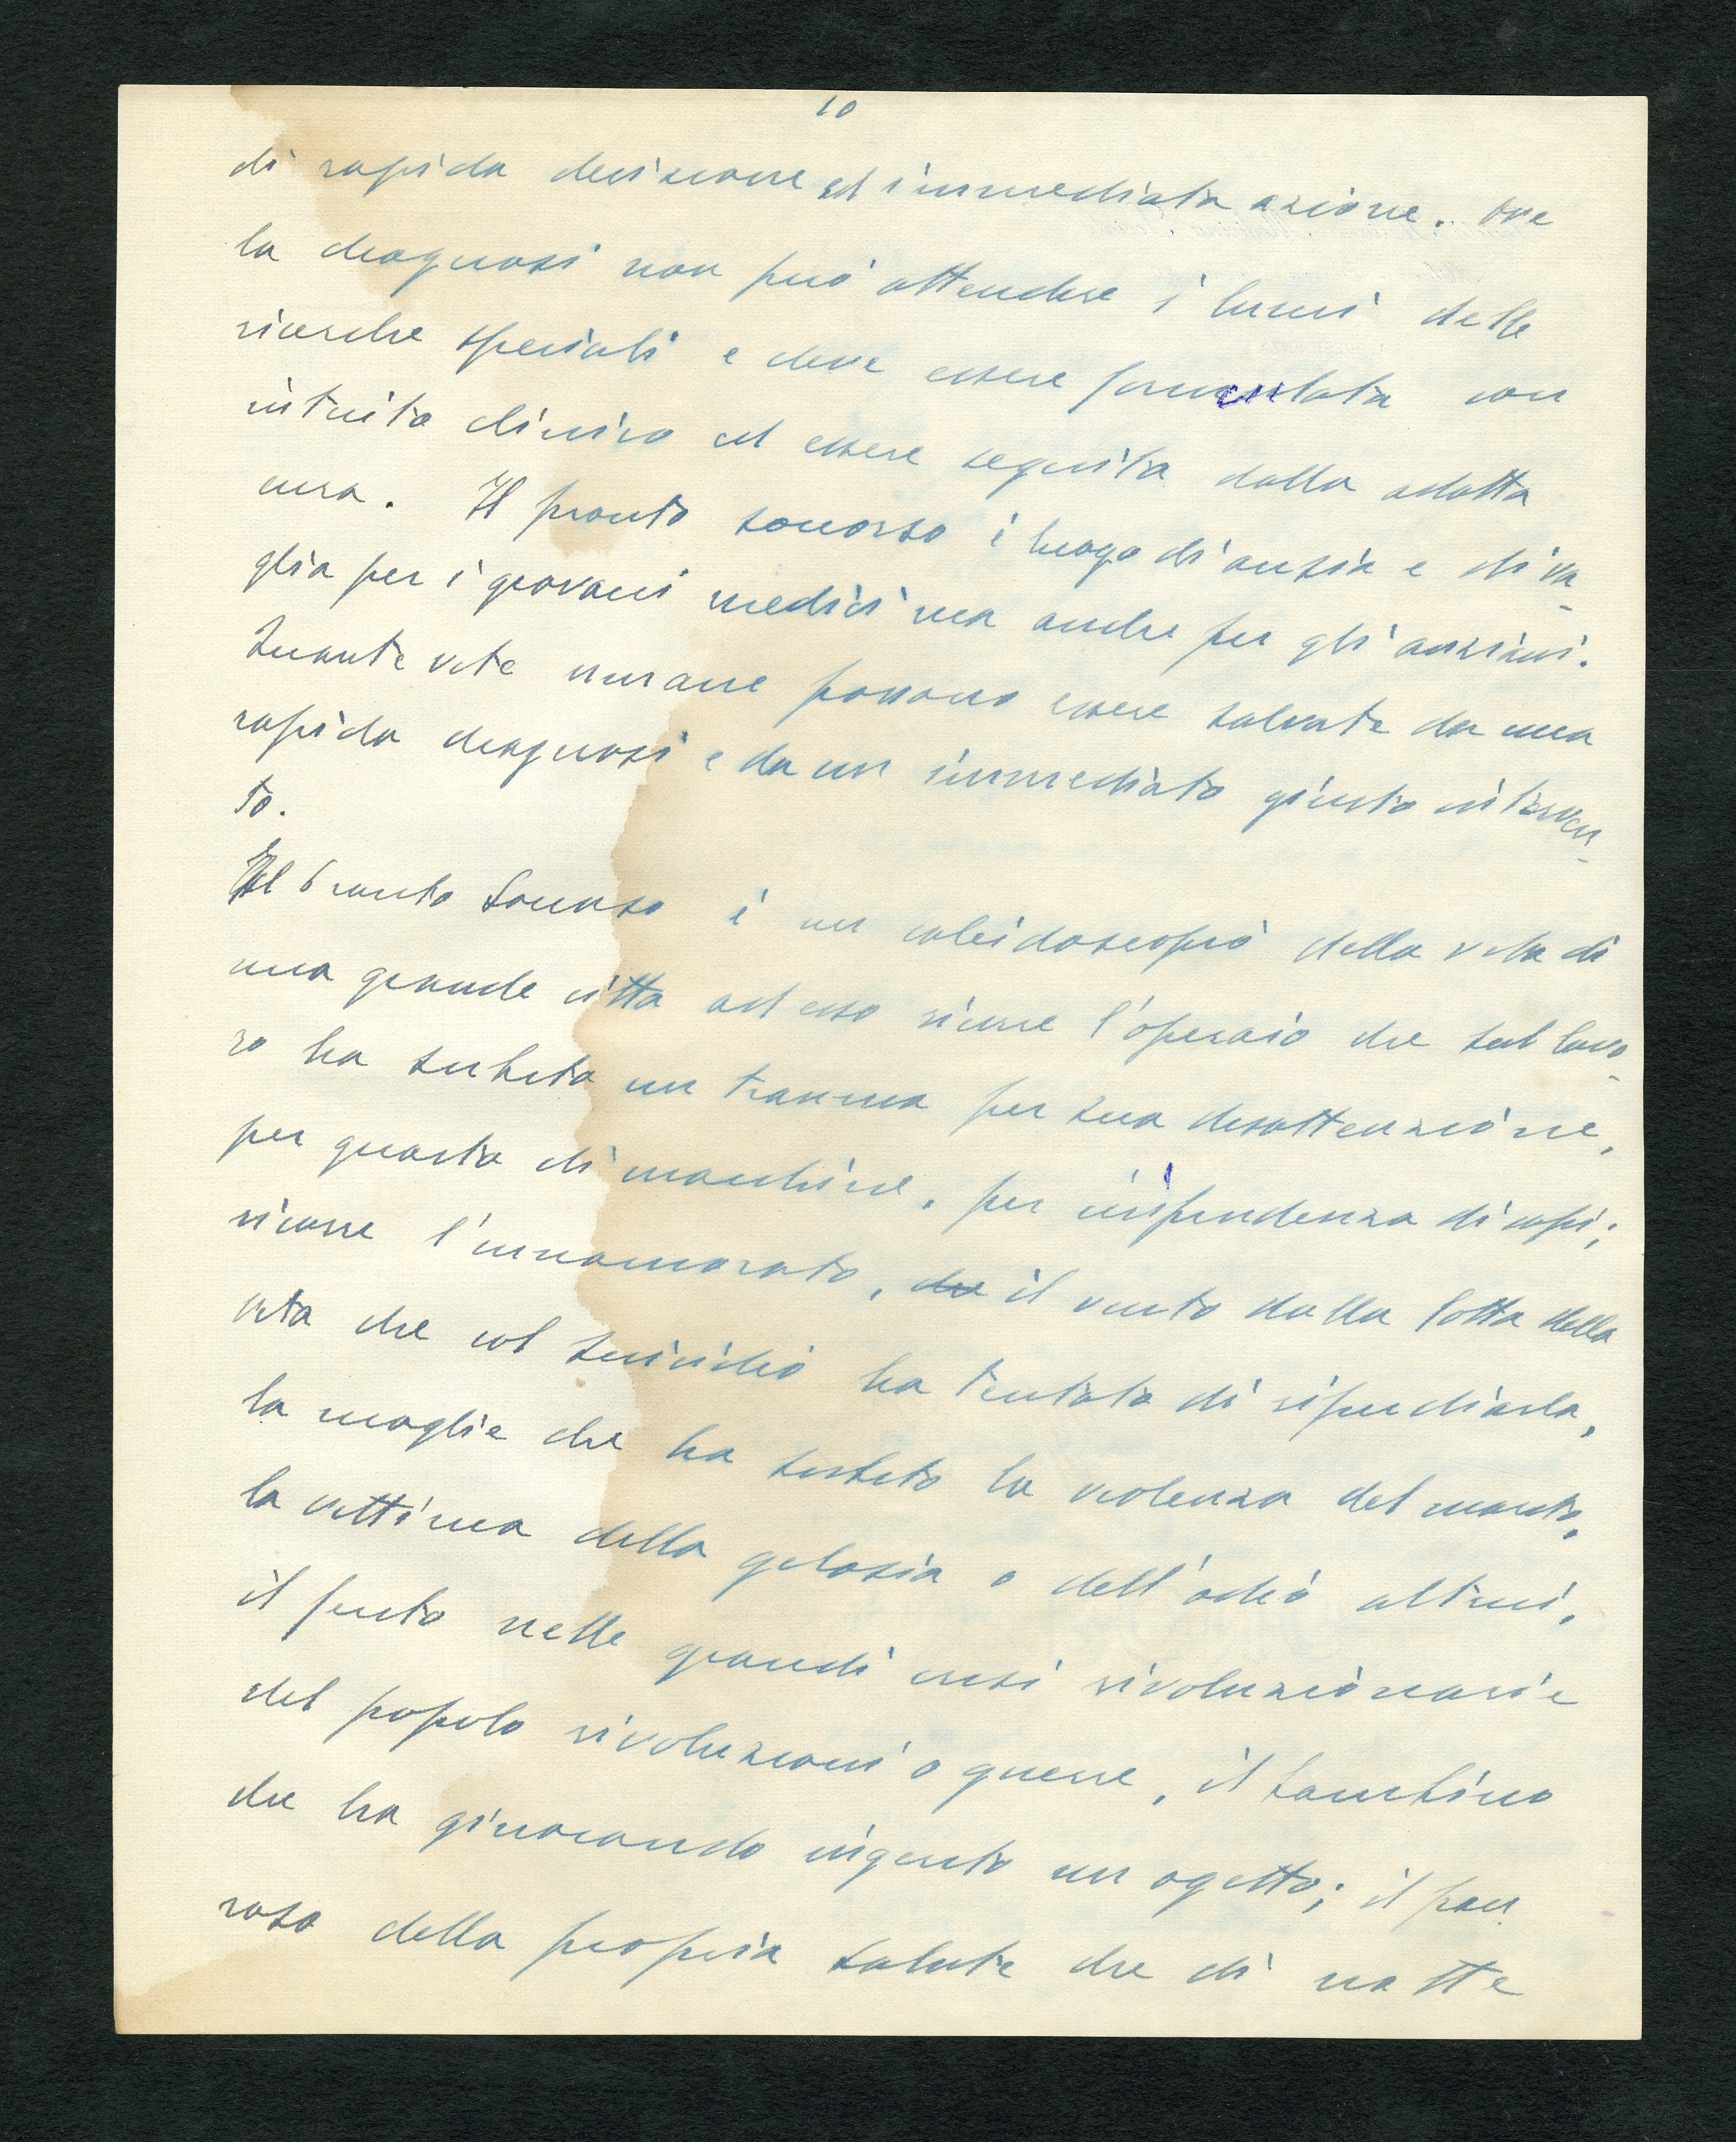 10
di rapida decisione ed immediata azione. Ove
la diagnosi non può attendere i lumi delle
ricerche speciali e deve essere formulata con
intuito clinico ed essere seguita dalla adatta
cura. Il pronto soccorso è luogo di ansia e di va-
glia per i giovani medici ma anche per gli anziani.
Quante vite umane possono essere salvate da una
rapida diagnosi e da un immediato giusto interven-
to.
Il Pronto Soccorso è un caleidoscopio della vita di
una grande città ad esso ricorre l'operaio che sul lavo-
ro ha subito un trauma per sua disattenzione,
per guasto di macchine, per imprudenza di capi;
ricorre l'innamorato, che il vinto dalla lotta della
vita che col suicidio ha tentato di ripudiarla,
la moglie che ha subito la violenza del marito,
la vittima della gelosia o dell'odio altrui,
il ferito nelle grandi crisi rivoluzionarie
del popolo rivoluzioni o guerre, il bambino
che ha giuocando ingerito un ogetto; il pau-
roso della propria salute che di notte